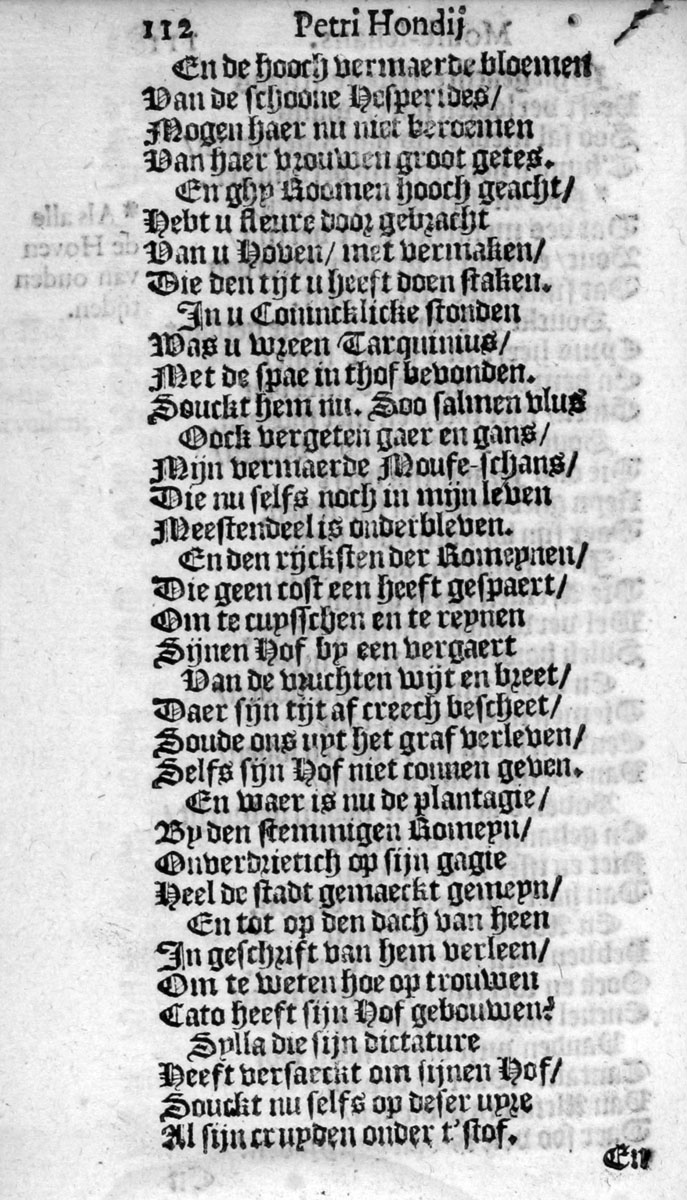 112. Petri Hondij
En de hooch vermaerde bloemen
Van de schoone Hesperides/
Mogen haer nu niet beroemen
Van haer vrouwen groot getes.
En ghy Roomen hooch geacht/
Hebt u fleure door gebracht
Van u Hoven/ met vermaken/
Die den tijt u heeft doen staken.
In u Conincklicke stonden
Was u wreen Tarquinius/
Met de spae in thof bevonden.
Souckt hem nu. Soo salmen vlus
Oock vergeten gaer en gans/
Mijn vermaerde Moufe-schans/
Die nu selfs noch in mijn leven
Meestendeel is onderbleven.
En den rijcksten der Romeynen/
Die geen cost een heeft gespaert/
Om te cuysschen en te reynen
Sijnen Hof by een vergaert
Van de vruchten wijt en breet/
Daer sijn tijt af creech bescheet/
Soude ons uyt het graf verleven/
Selfs sijn Hof niet connen geven.
En waer is nu de plantagie/
By den stemmigen Romeyn/
Onverdrietich op sijn gagie
Heel de stadt gemaeckt gemeyn/
En tot op den dach van heen
In geschrift van hem verleen/
Om te weten hoe op trouwen
Cato heeft sijn Hof gebouwen?
Sylla die sijn dictature
Heeft versaeckt om sijnen Hof/
Souckt nu selfs op deser uyre
Al sijn cruyden onder t'stof.
En